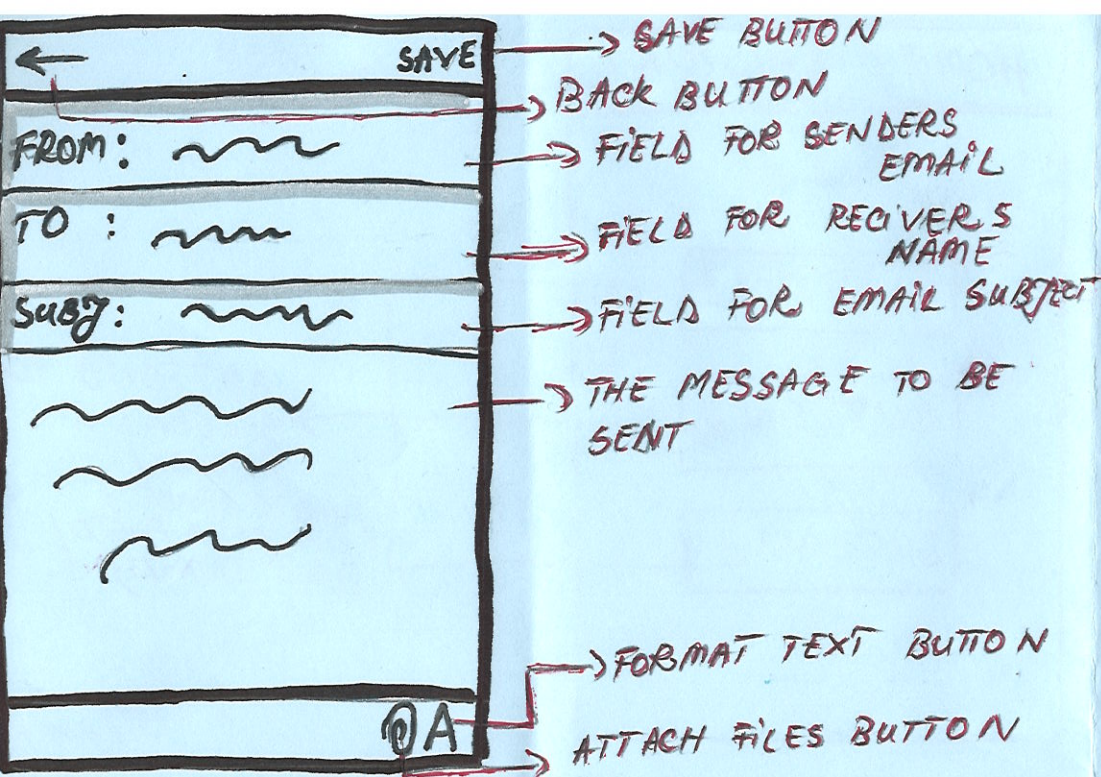 SAVE
SAVE BUTTON
BACK BUTTON
FROM:
FIELD FOR SENDERS
EMAIL
TO :
FIELD FOR RECIVER S
NAME
SUBJ:
FIELD FOR EMAIL SUBJECT
THE MESSAGE TO BE
SENT
FORMAT TEXT BUTTON
A
ATTACH FILES BUTTON